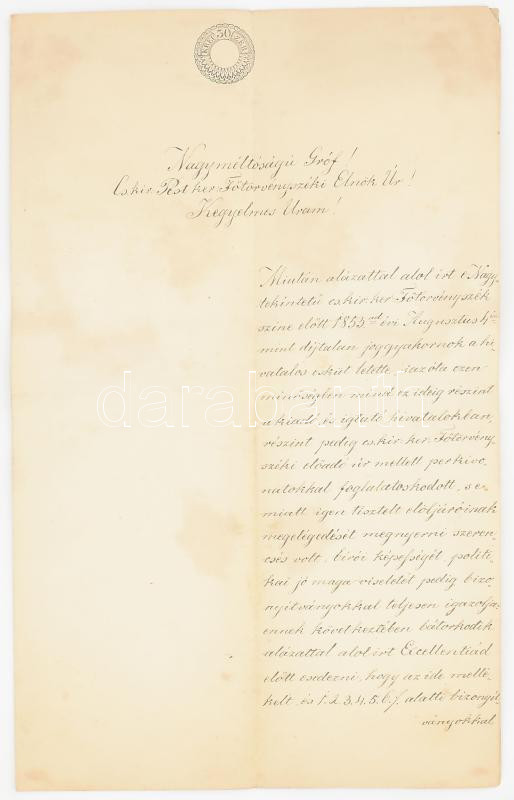 30
Nagyméltóságú Gróf!
Cs. kir. Pest ker. Főtörvényszéki Elnök Úr!
Kegyelmes Uram!
Miután alázattal alol irt e Nagy-
tekintetű cs. kir. ker. Főtörvényszék
szine előtt 1855 évi Augusztus
mint dijtalan joggyakornok a hi-
vatalos esküt letette, s azóta ezen
minőségben mind ez ideig részint
a kiadó és igtató hivatalokban,
részint pedig cs. kir. ker. Főtörvény-
széki előadó úr mellett perkivo-
natokkal foglalatoskodott, s e
miatt igen tisztelt elöljáróinak
megelégedését megnyerni szeren-
csés volt, birói képességét, politi-
kai jó maga viseletét pedig bizo-
nyitványokkal teljesen igazolja,
ennek következtében bátorkodik
alázattal alol irt Excellentiád
előtt esdezni, hogy az ide mellé-
kelt, és 1. 2. 3. 4. 5. 6. /. alatti bizonyit-
ványokkal
darabanth